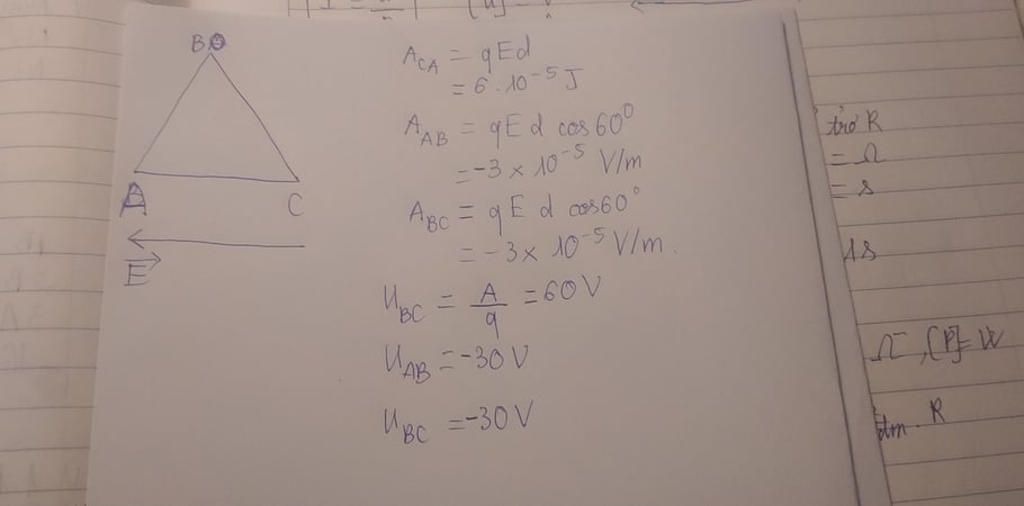 B
A
C
E
A_CA = qEd
= 6.10^-5 J
A_AB = qEd cos60°
= -3 × 10^-5 V/m
A_BC = qEd cos60°
= -3 × 10^-5 V/m.
U_BC = A/q = 60V
U_AB = -30V
U_BC = -30V
trở R
= Ω
= s
R